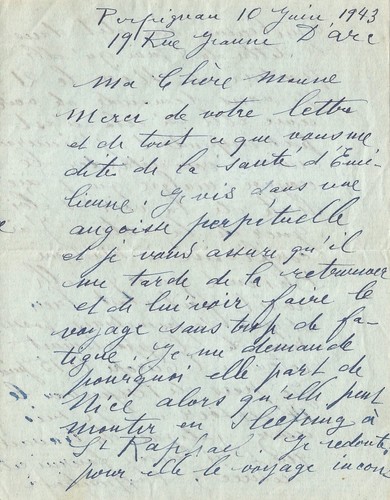 Perpignan 10 Juin, 1943
19 Rue Jeanne D'arc
Ma Chère Manne
Merci de votre lettre
et de tout ce que vous me
dite de la santé d'Emi-
lienne. Je vis dans une
angoisse perpétuelle
et je vous assure qu'il
me tarde de la retrouver
et de lui voir faire le
voyage sans trop de fa-
tigue. Je me demande
pourquoi elle part de
Nice alors qu'elle peut
monter en sleeping à
St Raphael. Je redoute
pour elle le voyage incon